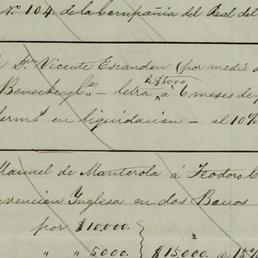 Nº 104. de la Compañia del Real del
Dn. Vicente Escandon (por medio d
$5000
letra á 6 meses de
en liquidacion — al 10%
Manuel de Manterola á Teodoro
vencion Inglesa en dos Bonos
por $10,000.
" " 5000. $15,000 @ 15%